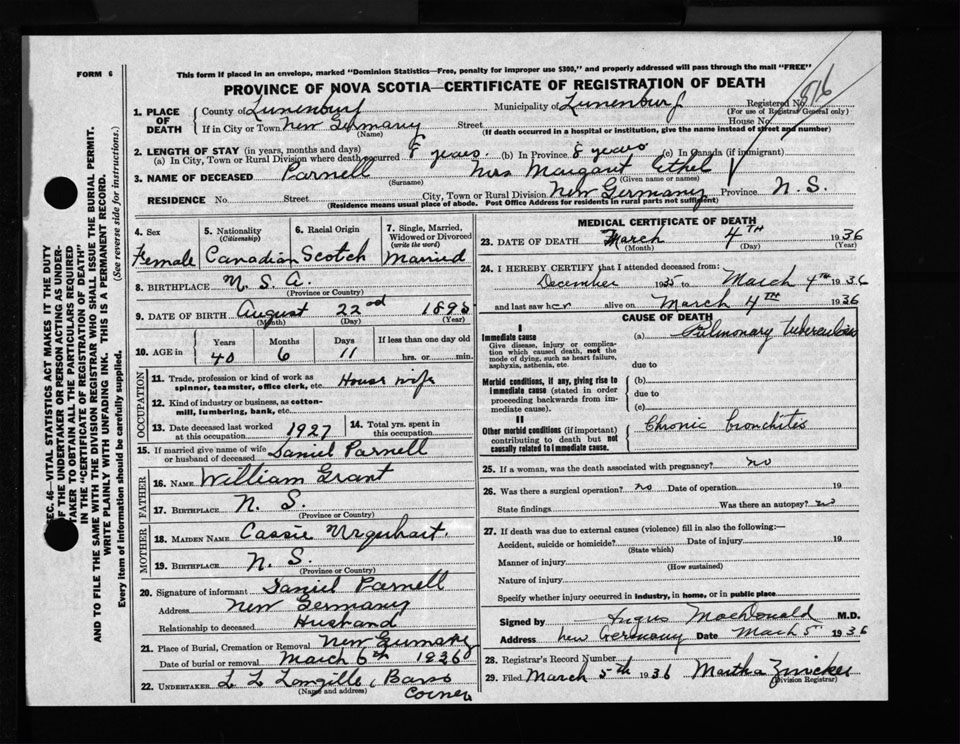 FORM 6
This form if placed in an envelope, marked "Dominion Statistics—Free, penalty for improper use $300," and properly addressed will pass through the mail "FREE"
PROVINCE OF NOVA SCOTIA—CERTIFICATE OF REGISTRATION OF DEATH
516
1. PLACE OF DEATH
County of Lunenburg Municipality of Lunenburg Registered No.
(For use of Registrar General only)
If in City or Town New Germany Street House No.
(Name) (If death occurred in a hospital or institution, give the name instead of street and number)
2. LENGTH OF STAY (in years, months and days)
(a) In City, Town or Rural Division where death occurred 8 years. (b) In Province 8 years (c) In Canada (if immigrant)
3. NAME OF DECEASED Parnell Mrs Margaret Ethel
(Surname) (Given name or names)
RESIDENCE No. Street City, Town or Rural Division New Germany Province N.S.
(Residence means usual place of abode. Post Office Address for residents in rural parts not sufficient)
4. Sex
Female
5. Nationality
(Citizenship)
Canadian
6. Racial Origin
Scotch
7. Single, Married, Widowed or Divorced
(write the word)
Married
8. BIRTHPLACE
(Province or Country)
9. DATE OF BIRTH August 22nd 1895
(Month) (Day) (Year)
10. AGE in Years Months Days If less than one day old
40 6 11 hrs. or min.
OCCUPATION
11. Trade, profession or kind of work as House wife
spinner, teamster, office clerk, etc.
12. Kind of industry or business, as cotton-
mill, lumbering, bank, etc.
13. Date deceased last worked at this occupation 1927
14. Total yrs. spent in this occupation
15. If married give name of wife or husband of deceased Daniel Parnell
FATHER
16. NAME William Grant
17. BIRTHPLACE N. S.
(Province or Country)
MOTHER
18. MAIDEN NAME Cassie Urquhart.
19. BIRTHPLACE N. S.
(Province or Country)
20. Signature of informant Daniel Parnell
Address New Germany
Relationship to deceased Husband
21. Place of Burial, Cremation or Removal New Germany
Date of burial or removal March 6th 1936
22. UNDERTAKER L L Langille, Barss Corner
(Name and address)
MEDICAL CERTIFICATE OF DEATH
23. DATE OF DEATH March 4TH 1936
(Month) (Day) (Year)
24. I HEREBY CERTIFY that I attended deceased from:
December 1935 to March 4TH 1936
and last saw her alive on March 4TH 1936
CAUSE OF DEATH
I
Immediate cause (a) Pulmonary tuberculosis
Give disease, injury or complication which caused death, not the mode of dying, such as heart failure, asphyxia, asthenia, etc.
due to
Morbid conditions, if any, giving rise to immediate cause (stated in order proceeding backwards from immediate cause).
(b)
due to
(c)
II
Other morbid conditions (if important) contributing to death but not causally related to immediate cause.
Chronic bronchitis
25. If a woman, was the death associated with pregnancy? no
26. Was there a surgical operation? no Date of operation 19
State findings Was there an autopsy? no
27. If death was due to external causes (violence) fill in also the following:—
Accident, suicide or homicide? Date of injury 19
(State which)
Manner of injury
(How sustained)
Nature of injury
Specify whether injury occurred in industry, in home, or in public place
Signed by Angus MacDonald M.D.
Address New Germany Date March 5 1936
28. Registrar's Record Number
29. Filed March 5th 1936 Martha Zwicker
(Division Registrar)
SEC. 46—VITAL STATISTICS ACT MAKES IT THE DUTY
OF THE UNDERTAKER OR PERSON ACTING AS UNDER-
TAKER TO OBTAIN ALL THE PARTICULARS REQUIRED
IN THE "CERTIFICATE OF REGISTRATION OF DEATH"
AND TO FILE THE SAME WITH THE DIVISION REGISTRAR WHO SHALL ISSUE THE BURIAL PERMIT.
WRITE PLAINLY WITH UNFADING INK. THIS IS A PERMANENT RECORD.
Every item of information should be carefully supplied. (See reverse side for instructions.)